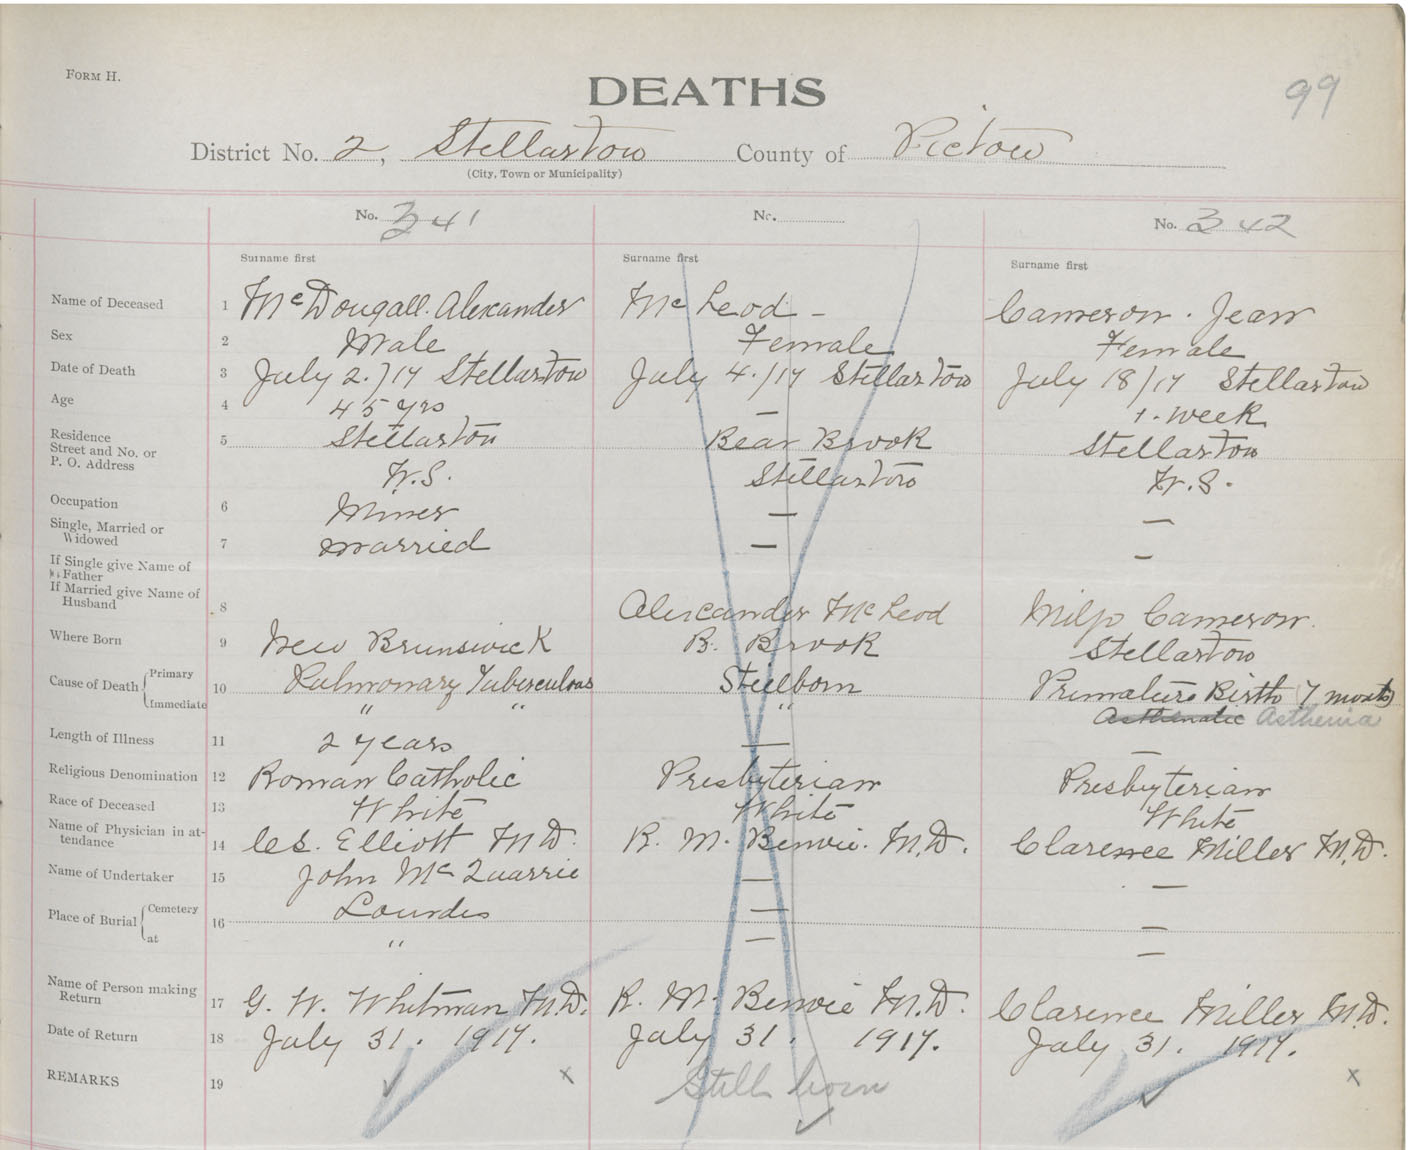 FORM H.
DEATHS
99
District No. 2, Stellarton County of Pictou
(City, Town or Municipality)
No. 341 No. No. 342
Surname first Surname first Surname first
Name of Deceased 1 McDougall. Alexander McLeod - Cameron. Jean
Sex 2 Male Female Female
Date of Death 3 July 2./17 Stellarton July 4./17 Stellarton July 18/17 Stellarton
Age 4 45 yrs — 1. week
Residence
Street and No. or 5 Stellarton Bear Brook Stellarton
P. O. Address
N.S. Stellarton N.S.
Occupation 6 Miner — —
Single, Married or
Widowed 7 married — —
If Single give Name of
Father
If Married give Name of
Husband 8 Alexander McLeod Cameron.
Where Born 9 New Brunswick B. Brook Stellarton
Cause of Death Primary 10 Pulmonary Tuberculous Stillborn Primature Birth (7 months)
Immediate " " " Asthenia
Length of Illness 11 2 years — —
Religious Denomination 12 Roman Catholic Presbyterian Presbyterian
Race of Deceased 13 White White White
Name of Physician in at-
tendance 14 Elliott M.D. R. M. Benvie. M.D. Clarence Miller M.D.
Name of Undertaker 15 John McQuarrie — —
Place of Burial Cemetery 16 Lourdes — —
at " — —
Name of Person making
Return 17 G. W. Whitman M.D. R. M. Benvie M.D. Clarence Miller M.D.
Date of Return 18 July 31. 1917. July 31. 1917. July 31. 1917.
REMARKS 19 x Still born x